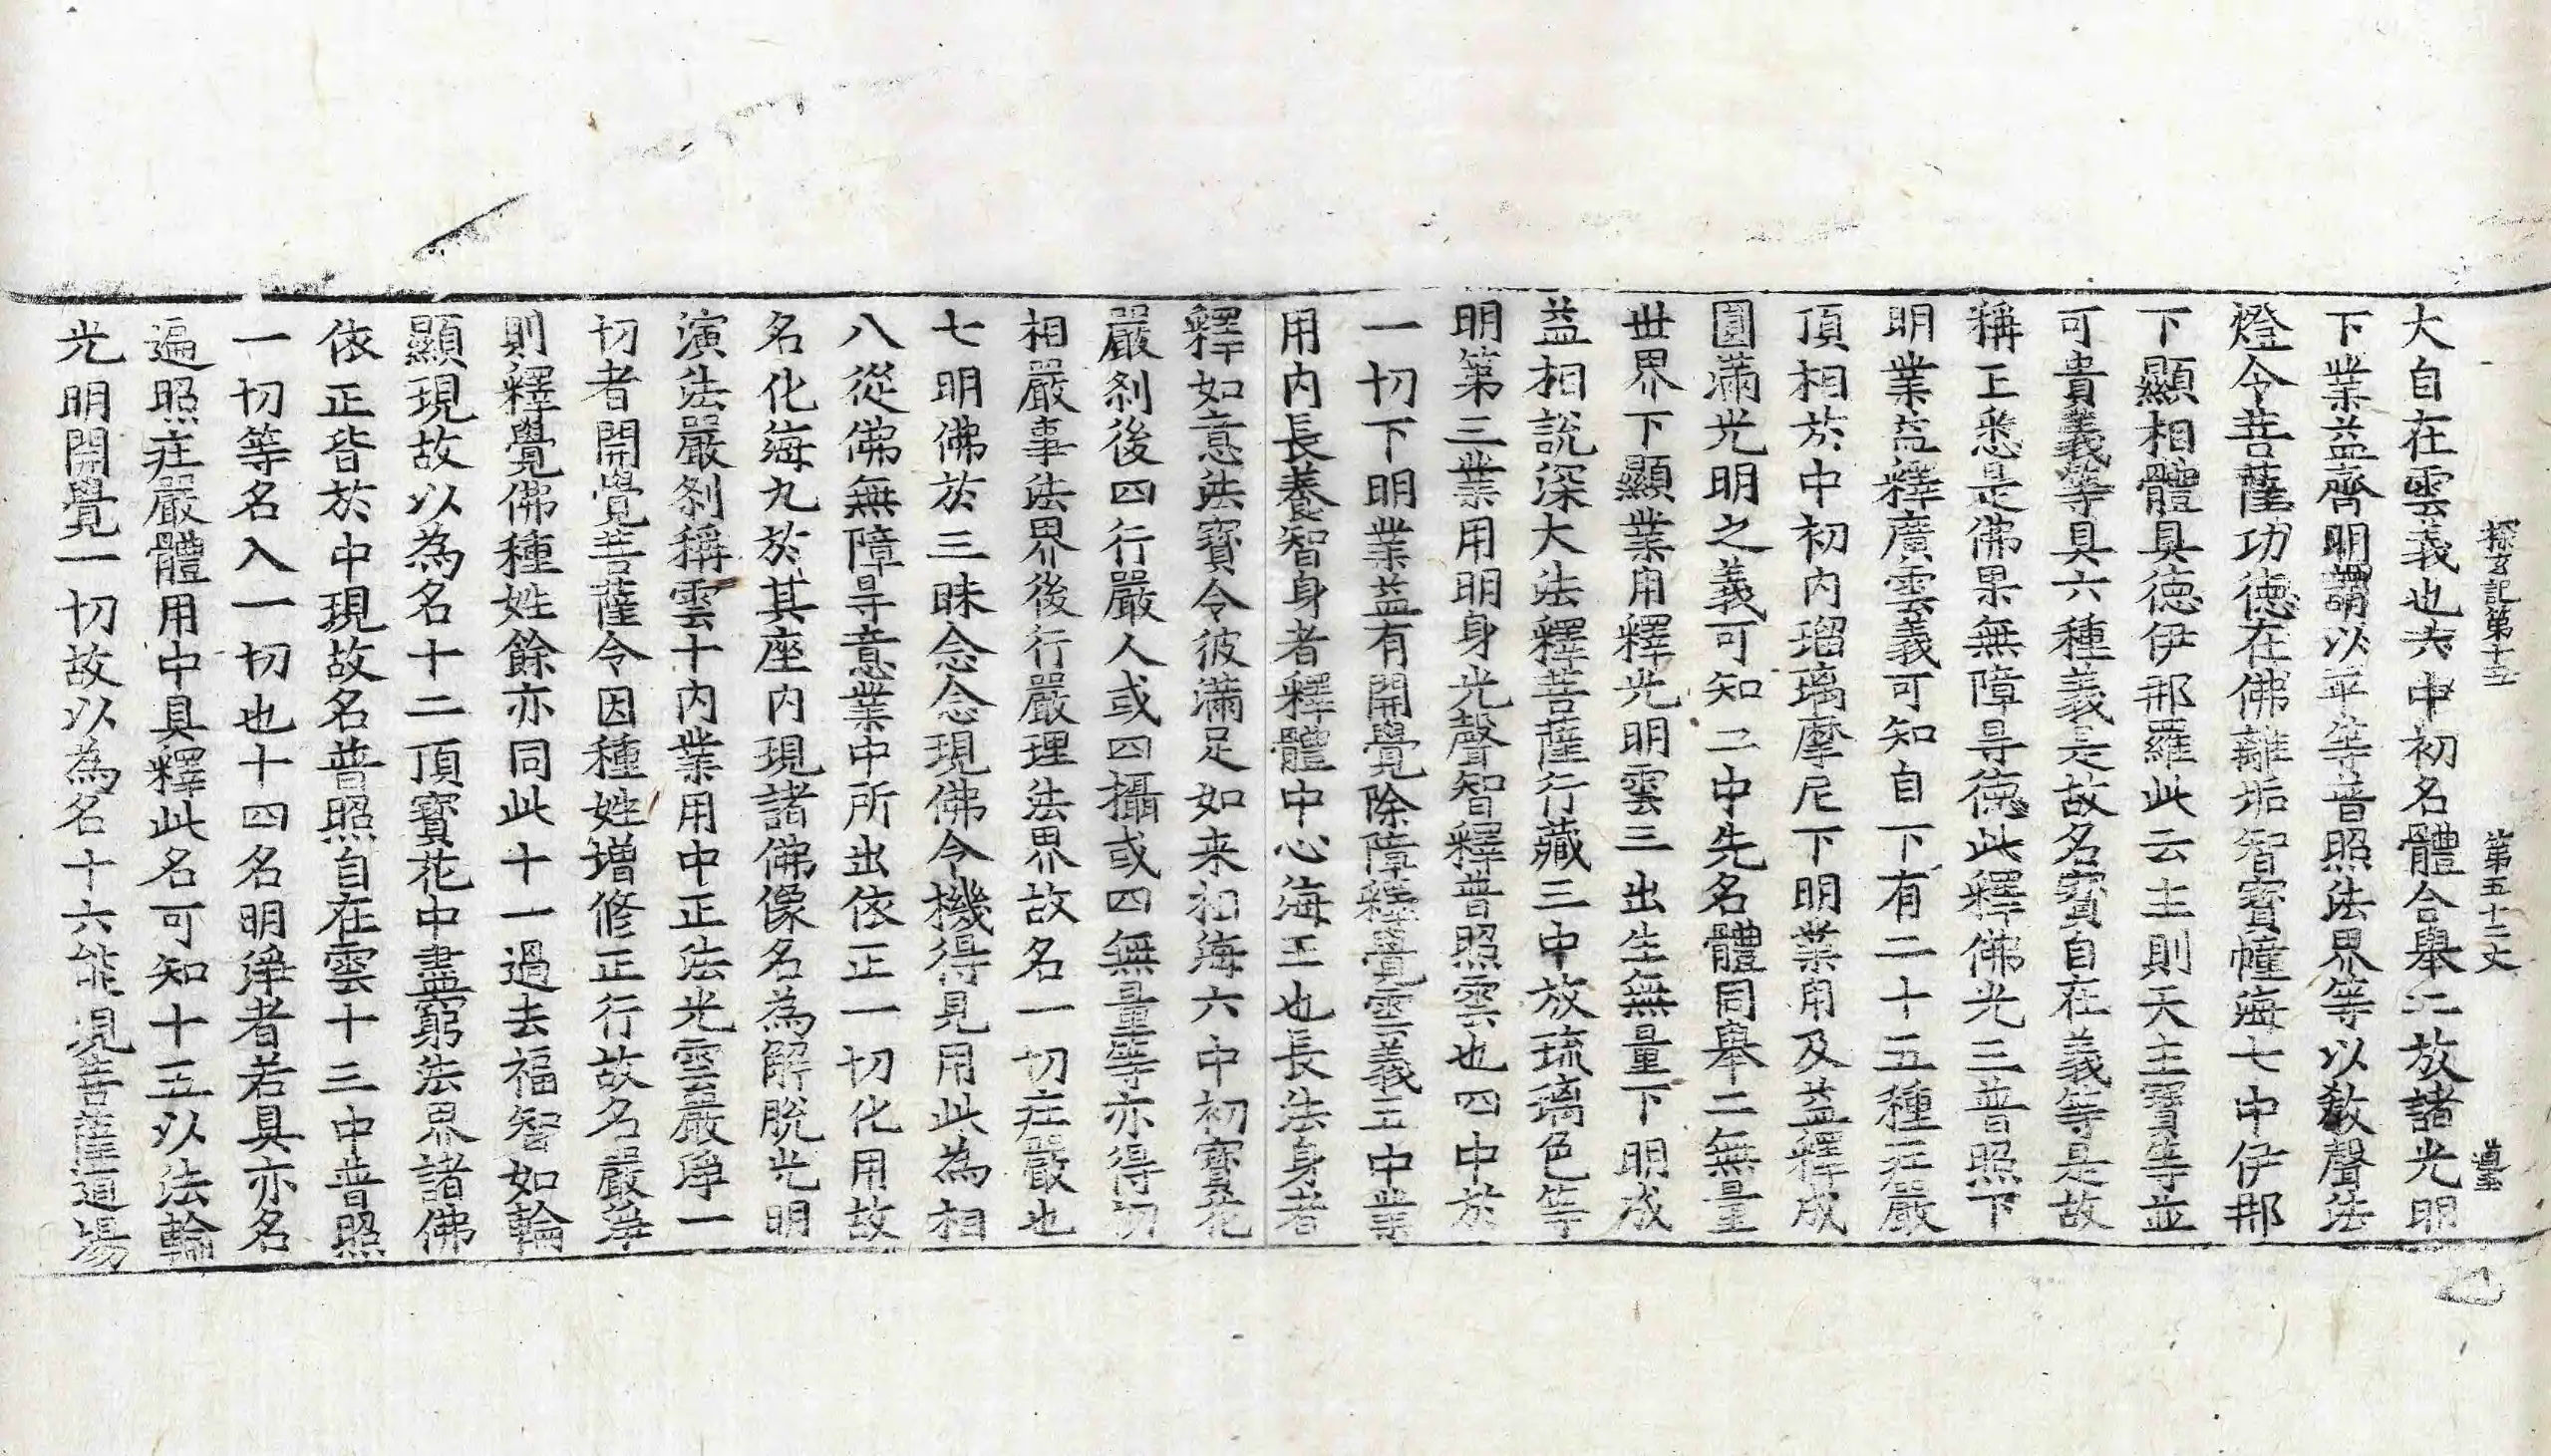 探玄記第十五 第五十二丈
大自在雲義也六中初名體合舉二放諸光明
下業益齊明謂以平等普照法界等以教聲法
燈令菩薩功德在佛離垢智寶幢海七中伊那
下顯相體具德伊那羅此云主則天主寶等並
可貴義等具六種義是故名寶自在義等是故
稱王悉是佛果無障㝵德此釋佛光三普照下
明業益釋廣雲義可知自下有二十五種庄嚴
頂相於中初內瑠璃摩尼下明業用及益釋成
圓滿光明之義可知二中先名體同舉二無量
世界下顯業用釋光明雲三出生無量下明成
益相說深大法釋菩薩行藏三中放琉璃色等
明第三業用明身光聲智釋普照雲也四中於
一切下明業益有開覺除障釋覺雲義五中業
用內長養智身者釋體中心海王也長法身者
釋如意法寶令彼滿足如来相海六中初寶花
嚴刹後四行嚴人或四攝或四無量等亦得初
相嚴事法界後行嚴理法界故名一切庄嚴也
七明佛於三昧念念現佛令機得見用此為相
八從佛無障㝵意業中所出依正一切化用故
名化海九於其座內現諸佛像名為解脫光明
演法嚴刹稱雲十內業用中正法光雲嚴淨一
切者開覺菩薩令因種姓增修正行故名嚴淨
則釋覺佛種姓餘亦同此十一過去福智如輪
顯現故以為名十二頂寶花中盡窮法界諸佛
依正皆於中現故名普照自在雲十三中普照
一切等名入一切也十四名明淨者若具亦名
遍照庄嚴體用中具釋此名可知十五以法輪
光明開覺一切故以為名十六能現菩薩道場